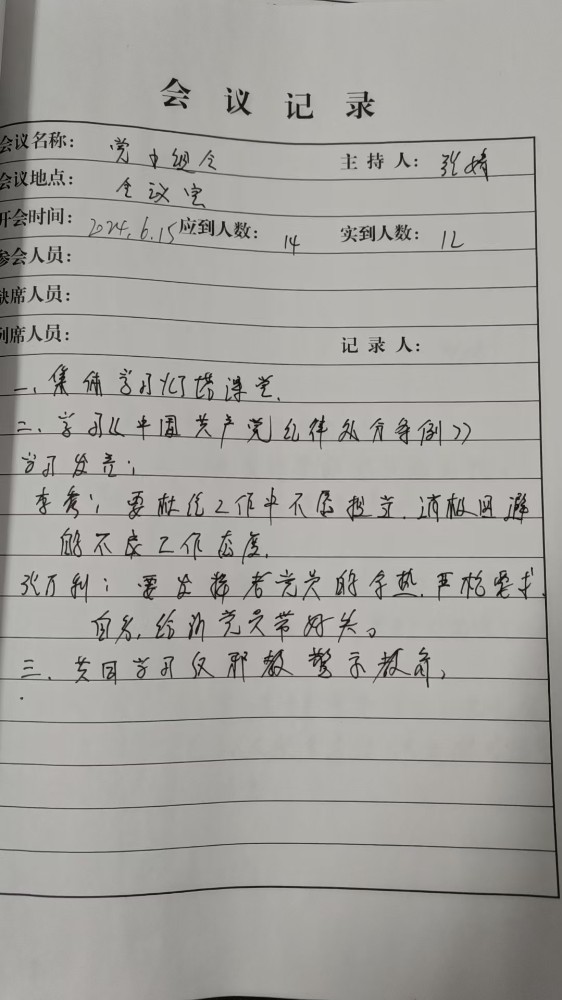 会议记录
会议名称： 党小组会 主持人： 张婧
会议地点： 会议室
开会时间： 2024.6.15 应到人数： 14 实到人数： 12
参会人员：
缺席人员：
列席人员： 记录人：
一、集体学习灯塔课堂.
二、学习《中国共产党纪律处分条例》
学习发言：
李秀：要杜绝工作中不愿担当、消极回避
的不良工作态度.
张万利：要发挥老党员的余热，严格要求
自己，给新党员带好头。
三、共同学习反邪教警示教育，